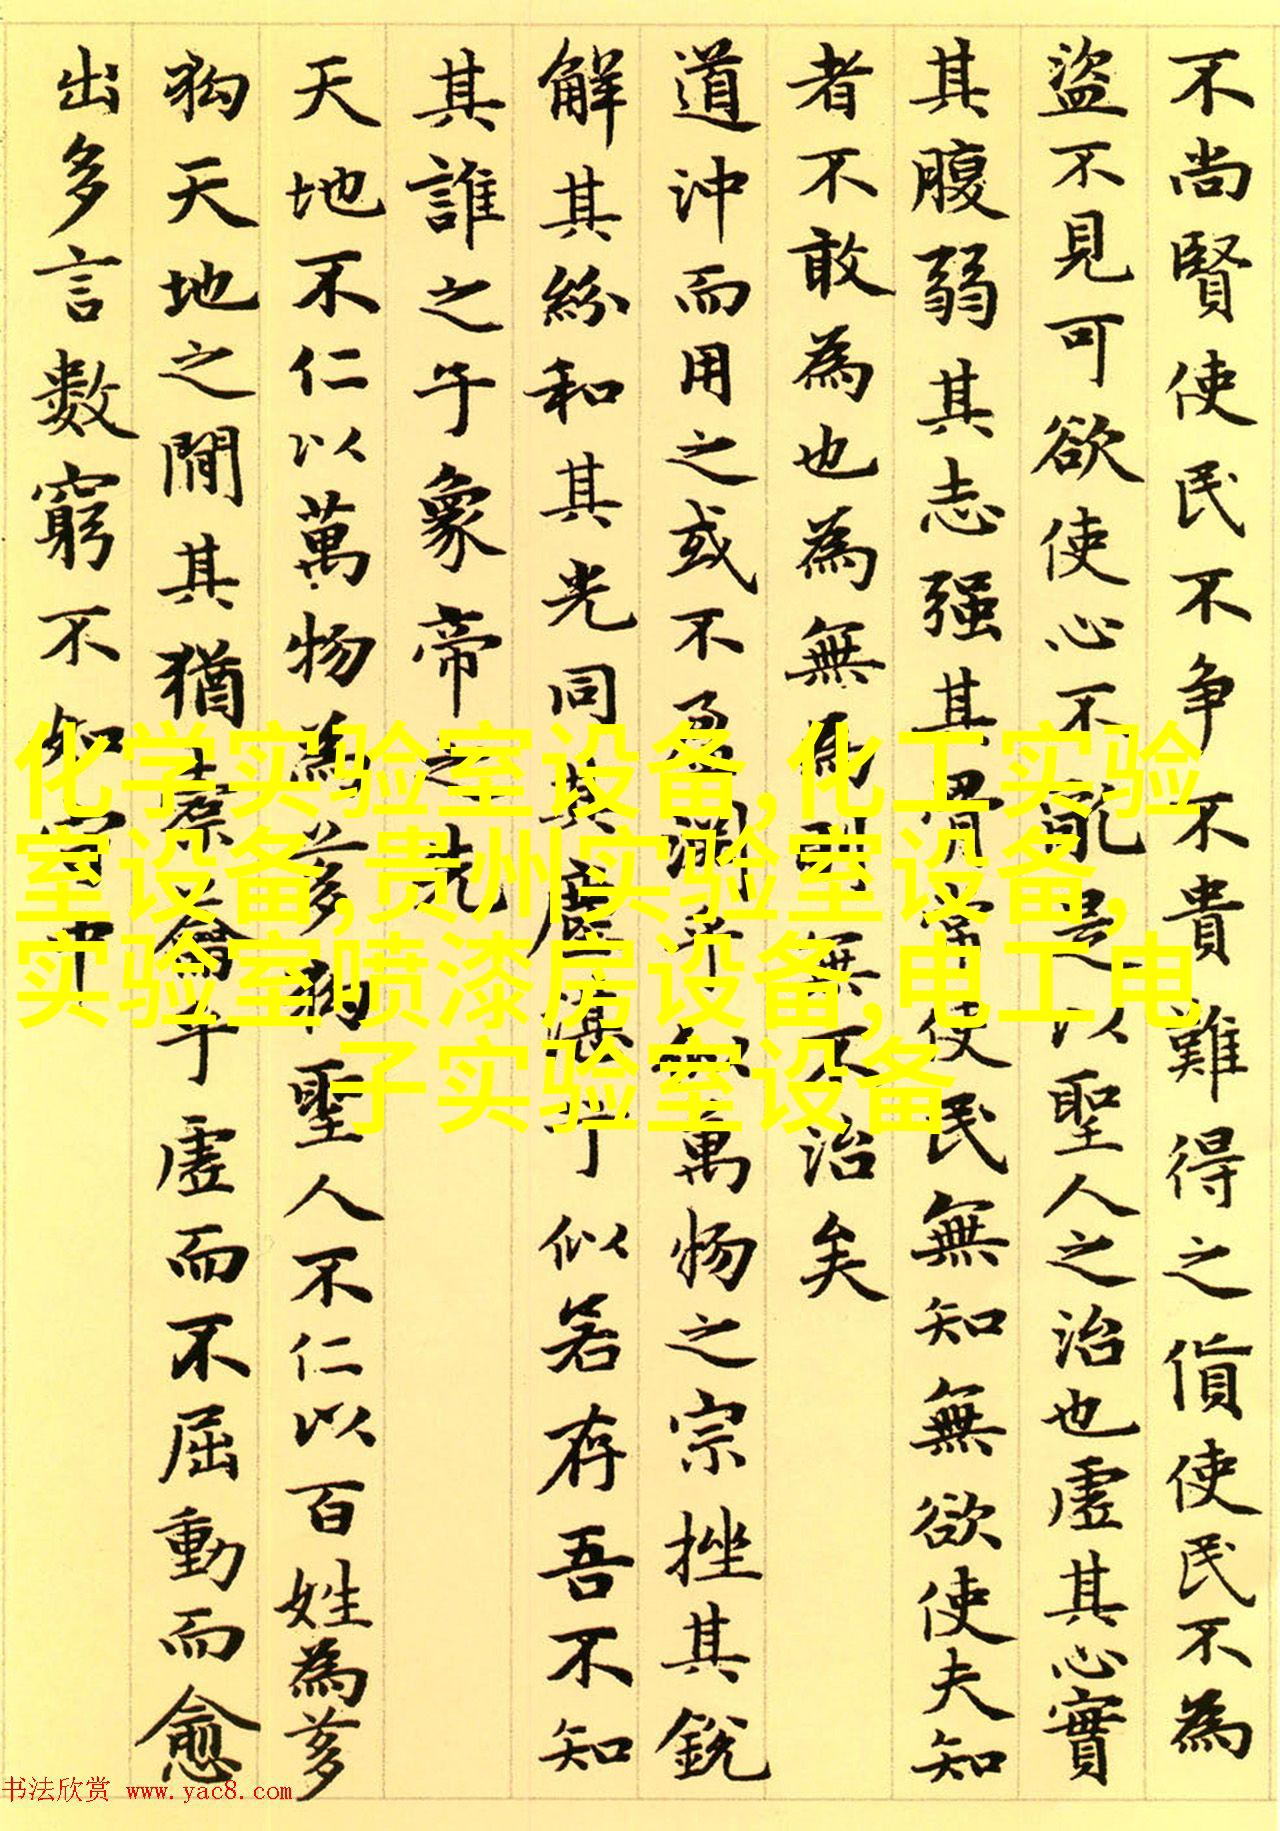 不尚賢使民不争不貴難得之貨使民不為
盜不見可欲使心不亂是以聖人之治也虛其心實
其腹弱其志强其骨常使民無知無欲使夫知
者不敢為也為無為則無不治矣
道沖而用之或不盈淵乎 萬物之宗挫其銳
解其紛和其光同其塵湛乎似若存吾不知
其誰之子象帝之先
天地不仁以萬物為芻狗聖人不仁以百姓為芻
狗天地之間其猶橐籥乎虛而不屈動而愈
出多言數窮不如守中
化学实验室设备,化工实验
室设备,贵州实验室设备,
实验室喷漆房设备,电工电
子实验室设备
书法欣赏 www.yac8.com